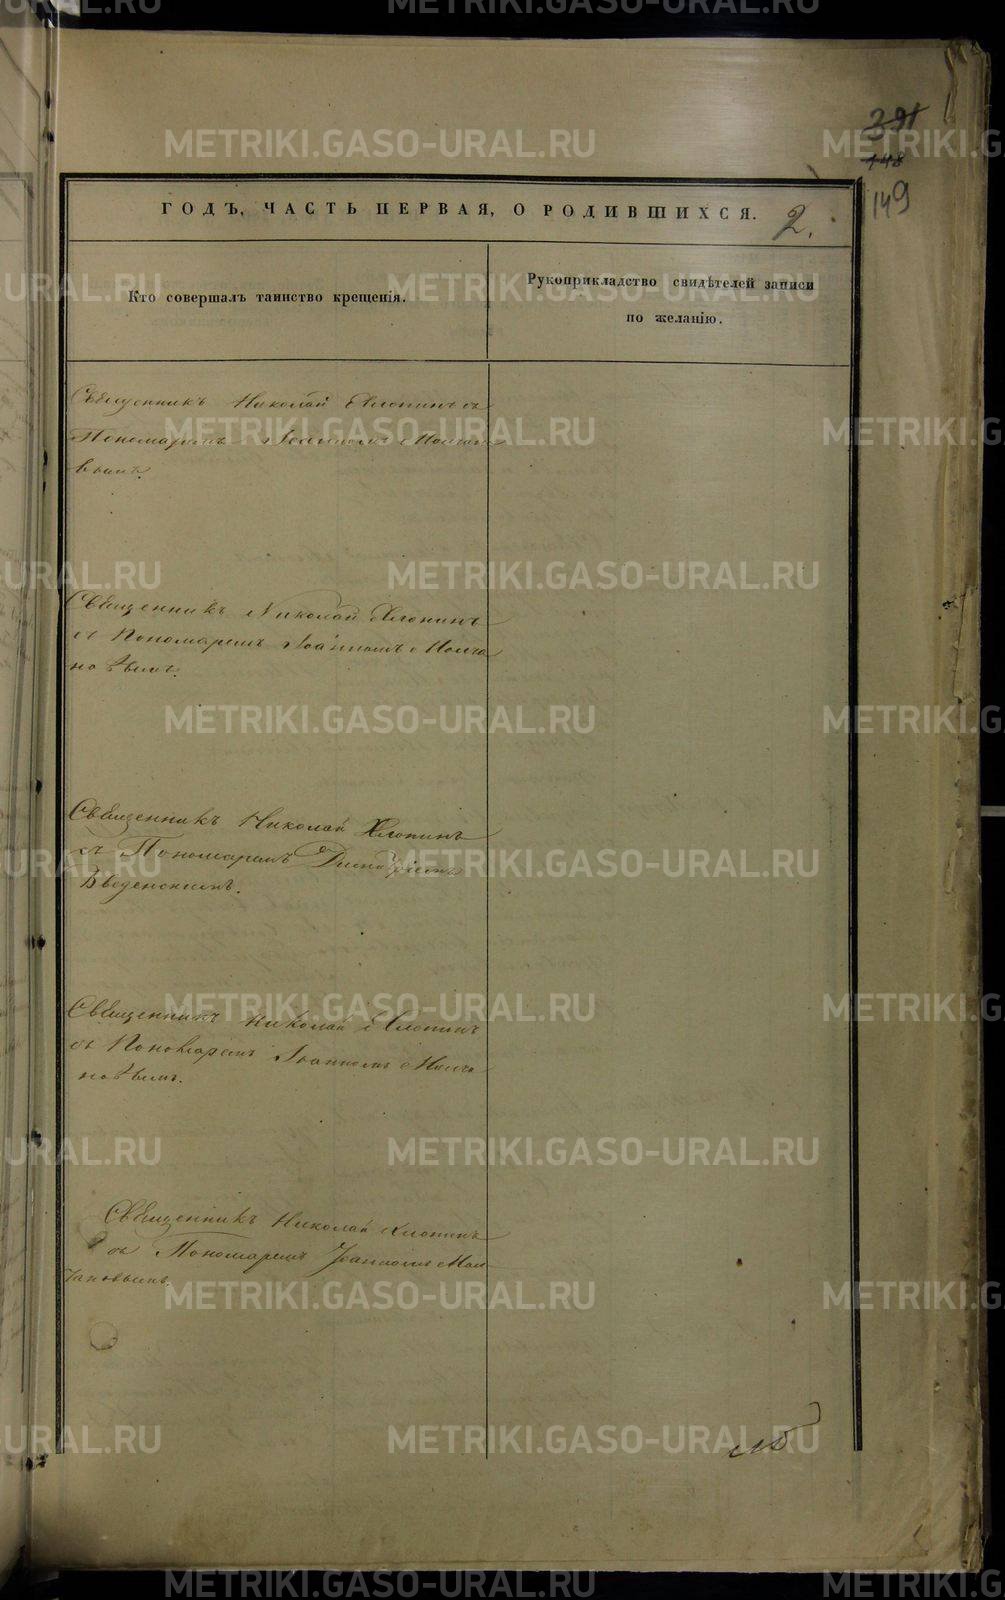 391
148
149
ГОДЪ, ЧАСТЬ ПЕРВАЯ, О РОДИВШИХСЯ.
2.
Кто совершалъ таинство крещенія.
Рукоприкладство свидѣтелей записи
по желанію.
Священникъ Николай Хлопинъ съ
Пономаремъ Іоанномъ Молчано
вымъ.
Священникъ Николай Хлопинъ
съ Пономаремъ Іоанномъ Молча
новымъ.
Священникъ Николай Хлопинъ
съ Пономаремъ Димитріемъ
Введенскимъ.
Священникъ Николай Хлопинъ
съ Пономаремъ Іоанномъ Молча
новымъ.
Священникъ Николай Хлопинъ
съ Пономаремъ Іоанномъ Мол
чановымъ.
METRIKI.GASO-URAL.RU